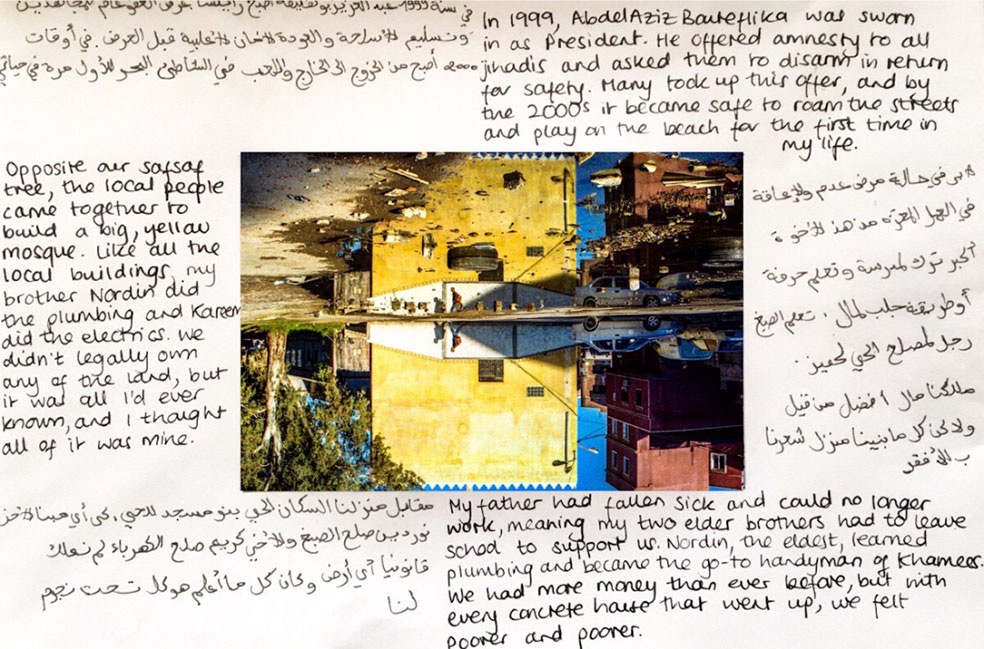 في سنة 1999 عبد العزيز بوتفليقة أصبح عرض العفو عام للمجاهدين
وتسليم لاسلحة والعودة لاغلبية قبل العرض. في أوقات
2000 أصبح من الخروج الى الخارج واللعب في الشاطئ البحر للأول مرة في حياتي
In 1999, AbdelAziz Bouteflika was sworn
in as President. He offered amnesty to all
jihadis and asked them to disarm in return
for safety. Many took up this offer, and by
the 2000s it became safe to roam the streets
and play on the beach for the first time in
my life.
Opposite our safsaf
tree, the local people
came together to
build a big, yellow
mosque. Like all the
local buildings, my
brother Nordin did
the plumbing and Kareem
did the electrics. We
didn't legally own
any of the land, but
it was all I'd ever
known, and I thought
all of it was mine.
في حالة مرض عدم
في من هذ لاخوة
أكبر ترك لمدرسة وتعلم حرفة
أو طريقة جلب المال . تعلم الصبغ
رجل لمصلح الحي
مال أفضل من قبل
ولاكن كل ما بنينا منزل شعرنا
بالأفقر
مقابل منزلنا السكان الحي بنو مسجد للحي، كي أي
نوردين صلح الصبغ ولاخي كريم صلح الكهرباء لم نملك
قانونيا أي أرض وكان كل ما أعلم هو كل تحت نجوم
لنا
My father had fallen sick and could no longer
work, meaning my two elder brothers had to leave
school to support us. Nordin, the eldest, learned
plumbing and became the go-to handyman of Khamees.
We had more money than ever before, but with
every concrete house that went up, we felt
poorer and poorer.